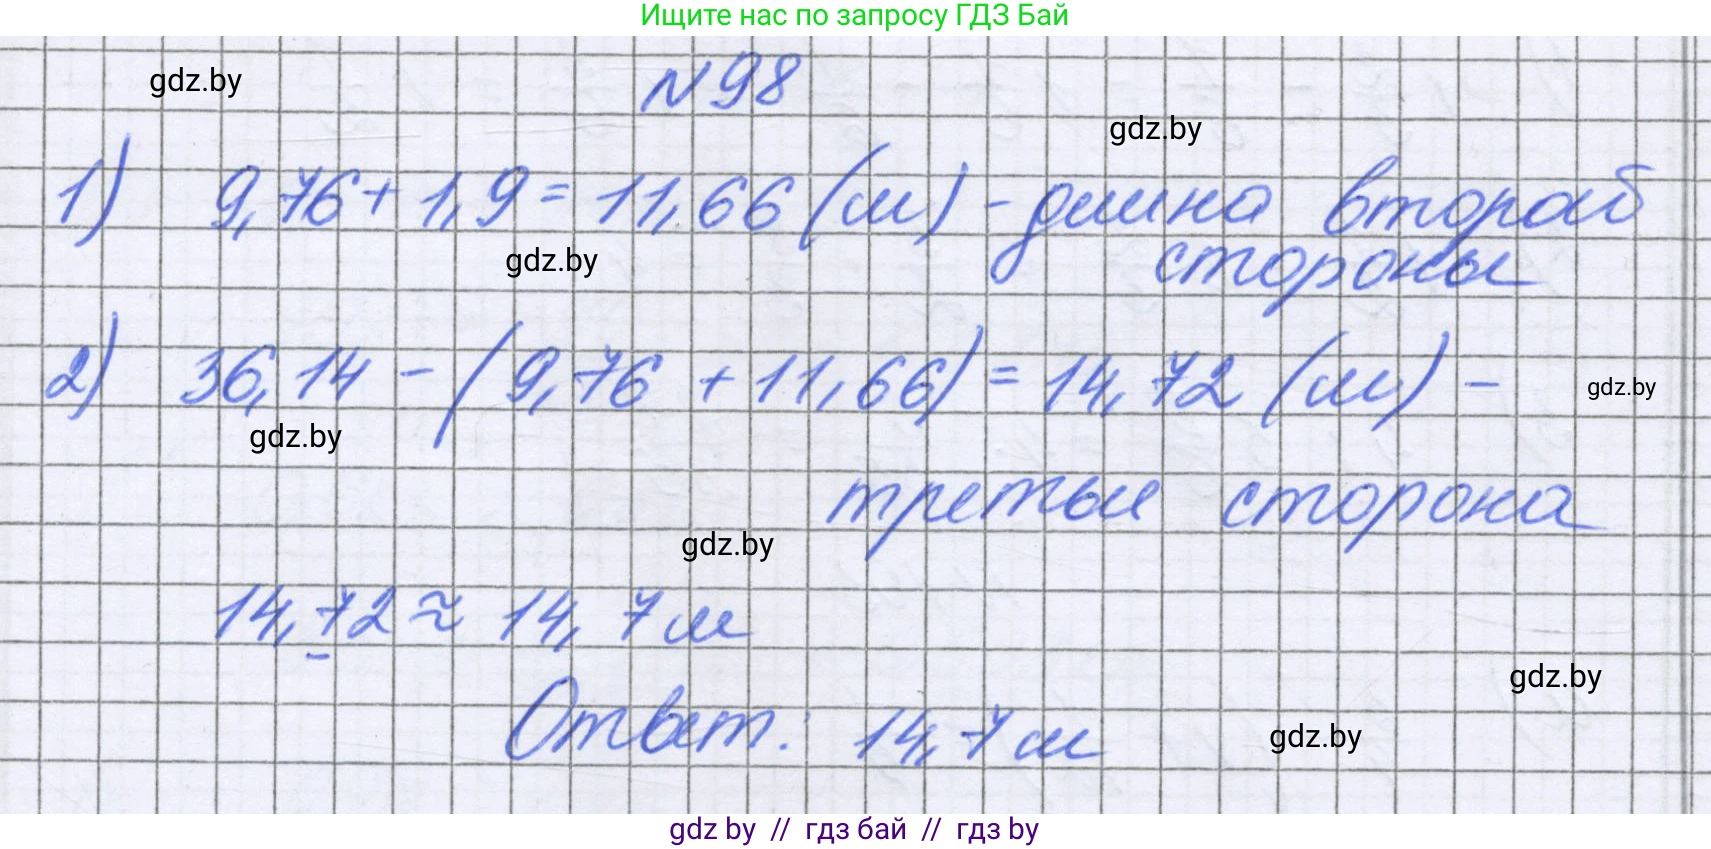 Ищите нас по запросу ГДЗ Бай
gdz.by
№98
gdz.by
1) 9,76 + 1,9 = 11,66 (м) - длина второй
стороны
gdz.by
2) 36,14 - (9,76 + 11,66) = 14,72 (м) -
gdz.by
gdz.by
третья сторона
gdz.by
14,72 ≈ 14,7 м
gdz.by
Ответ: 14,7 м
gdz.by
gdz by // гдз бай // гдз by